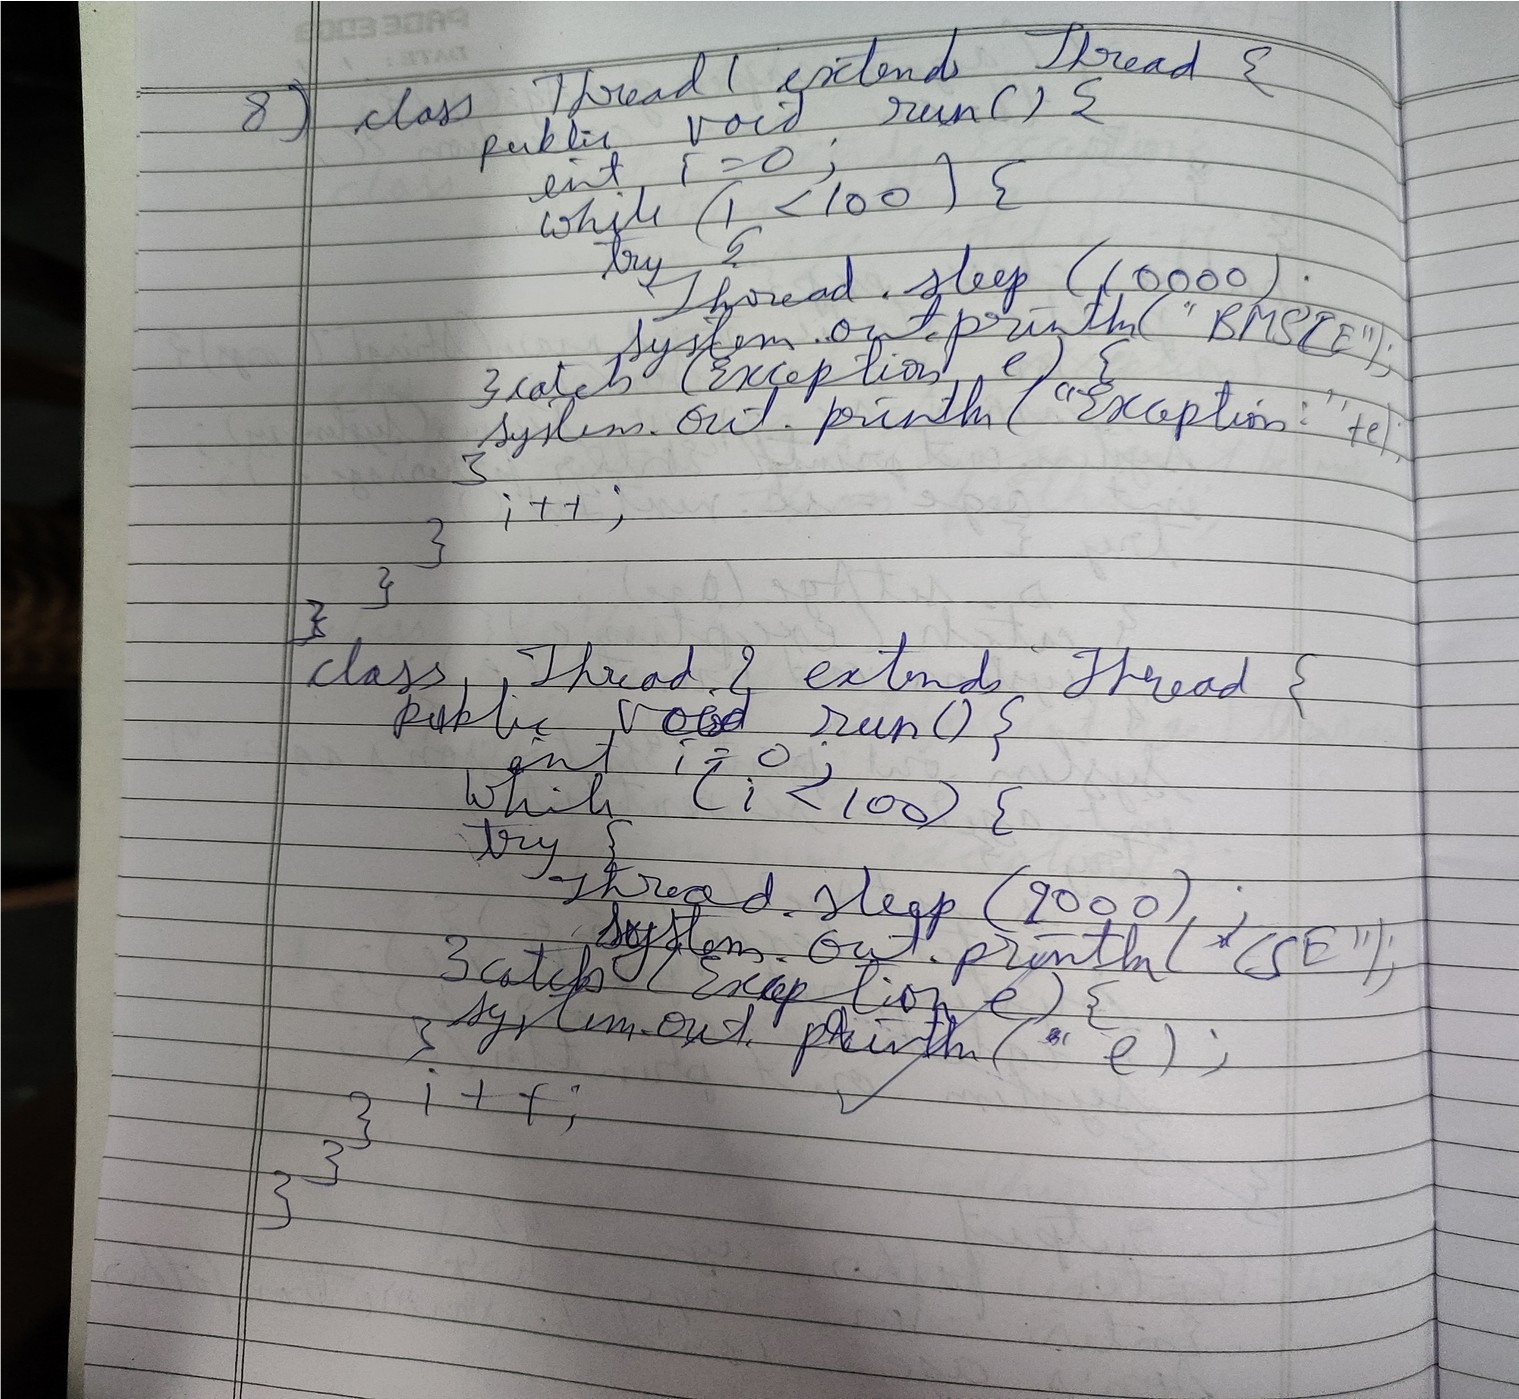 8) class Thread1 extends Thread {
public void run() {
int i=0;
while (i <100) {
try {
Thread.sleep (10000).
system.out.println("BMSCE");
}catch (Exception e) {
system.out.println("Exception:"+e);
}
i++;
}
}
}
class Thread2 extends Thread {
public void run() {
int i=0;
while (i <100) {
try {
Thread.sleep (2000);
system.out.println("CSE");
}catch (Exception e) {
system.out.println(" e);
}
i++;
}
}
}